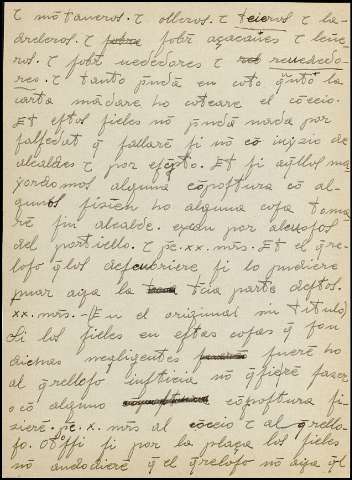 τ mōtaneros. τ olleros. τ teieros τ la-
drelleros. τ fobr̄ açacanes τ leñe
ros. τ fobr̄ uededores τ reuededo-
res. τ tanto pnda en coto qnto la
carta madare ho coteare el cōceio.
Et eftos fieles nō pnda nada por
falfedat q̄ fallarē fi nō cō inyzio de
alcaldes τ por efcpto. Et fi aqllos ma
yordomos alguna cōpoftura cō al-
gunos fizien ho alguna cofa toma
rē fin alcalde. exean por aleuofos
del portiello. τ pc. xx. mrs. Et el q̄re-
lofo q̄los defcubriere fi lo pudiere
puar aya la tcia parte deftos.
xx. mrs. — (En el original sin titulo)
Si los fieles en eftas cofas q̄ fon
dichas negligentes fuerē ho
al q̄rellofo iufticia nō q̄fierē fazer
o cō alguno cōpoftura fi
zierē. pc. x. mrs al cōceio τ al q̄rello-
fo. Otoffi fi por la plaça los fieles
nō andodierē q̄ el q̄relofo nō aya q̄l